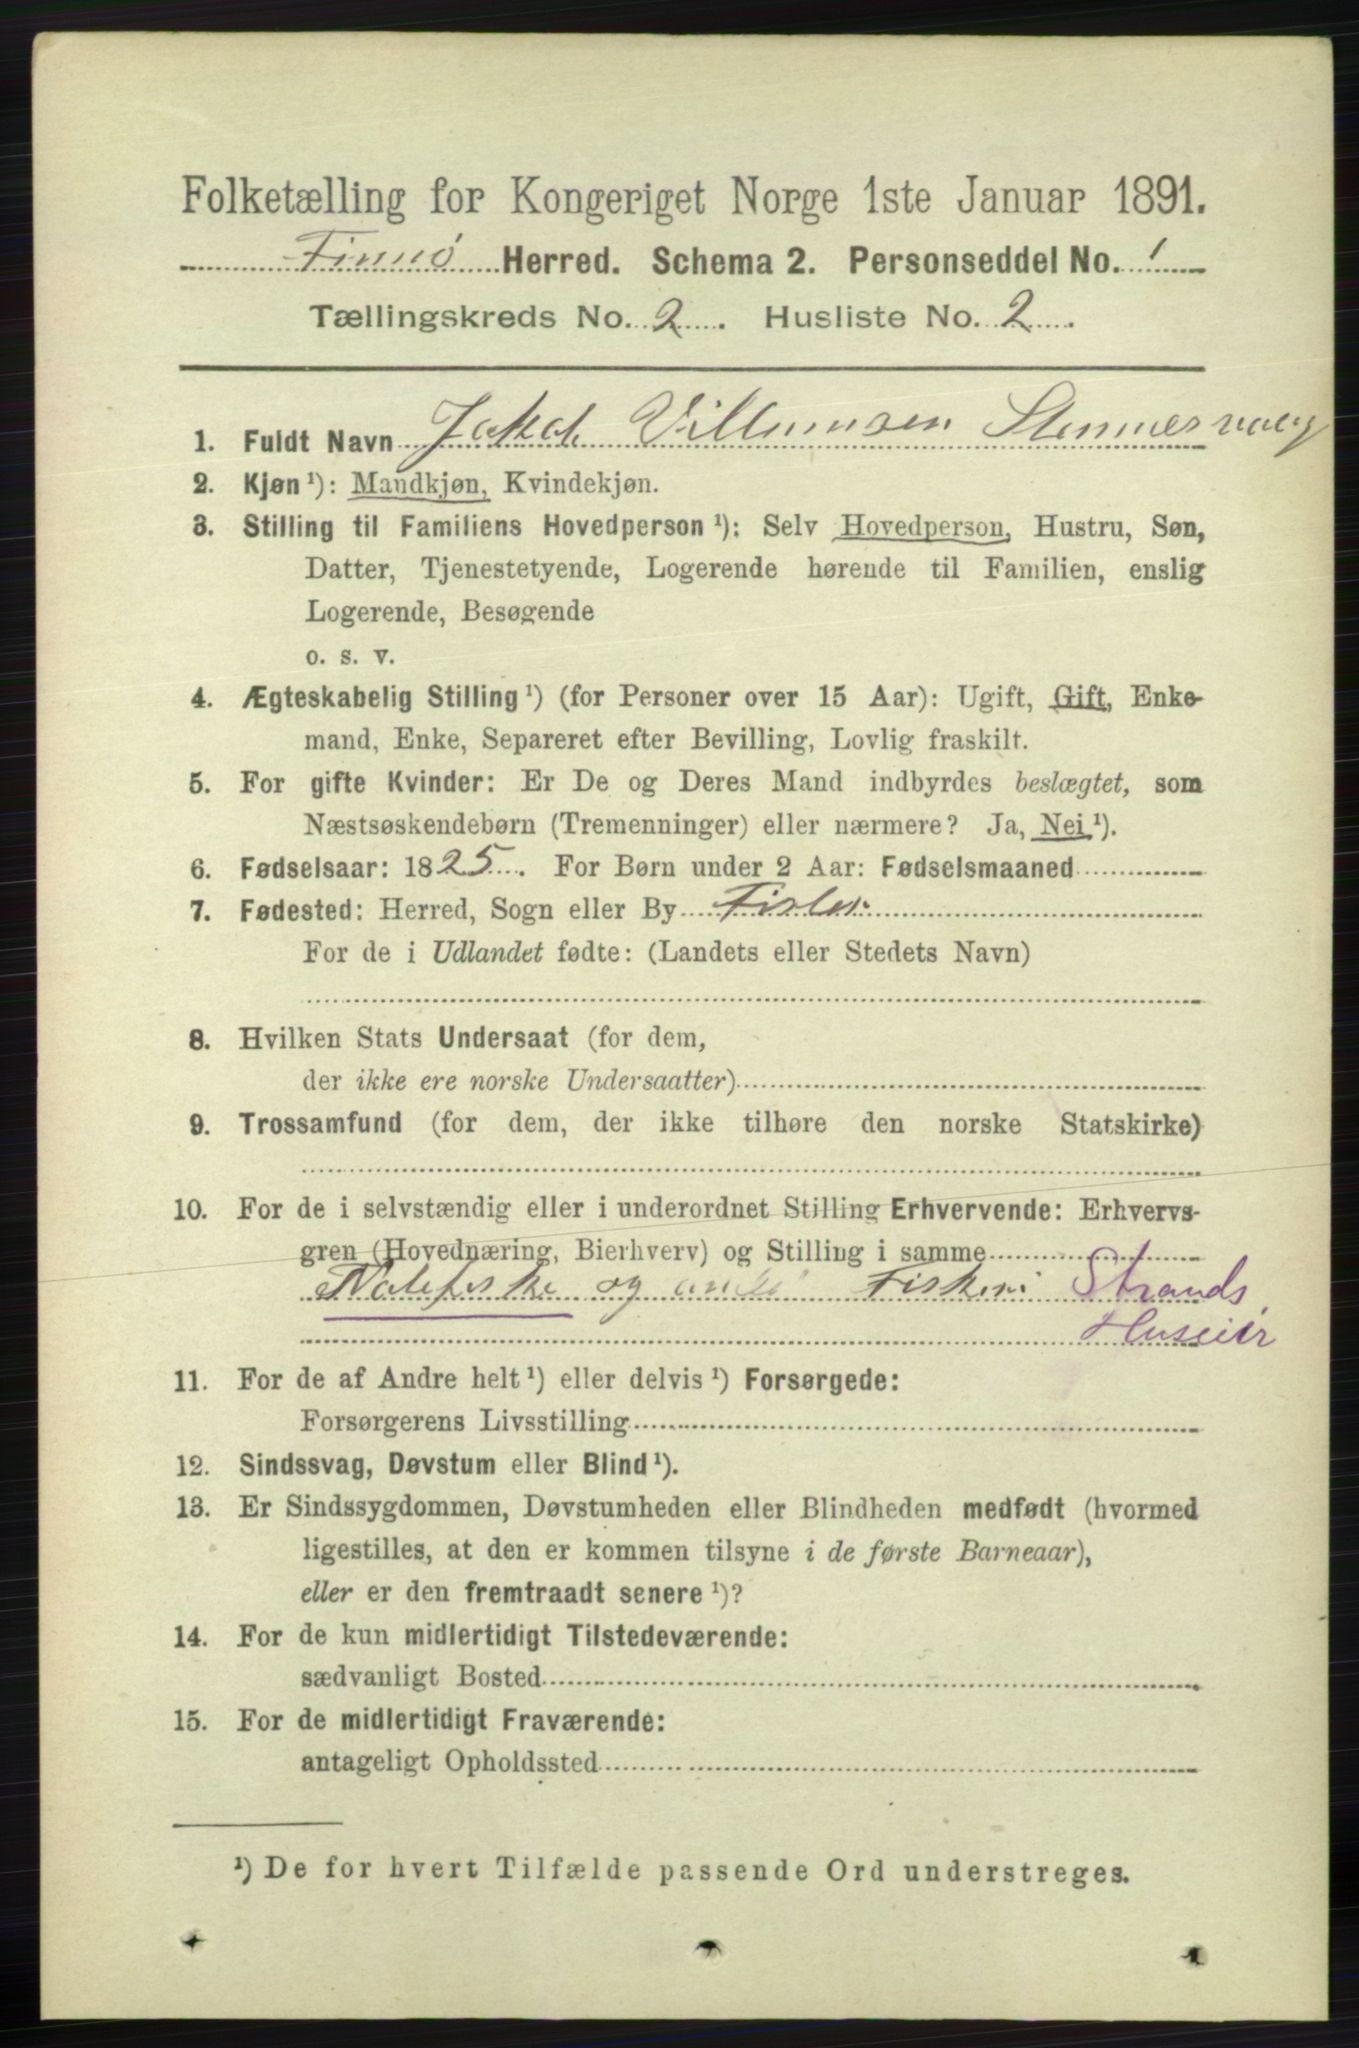 Folketælling for Kongeriget Norge 1ste Januar 1891.
Finnø Herred. Schema 2. Personseddel No. 1
Tællingskreds No. 2. Husliste No. 2.
1. Fuldt Navn Jakob Villumsen
2. Kjøn ¹): Mandkjøn, Kvindekjøn.
3. Stilling til Familiens Hovedperson ¹): Selv Hovedperson, Hustru, Søn,
Datter, Tjenestetyende, Logerende hørende til Familien, enslig
Logerende, Besøgende
o. s. v.
4. Ægteskabelig Stilling ¹) (for Personer over 15 Aar): Ugift, Gift, Enke-
mand, Enke, Separeret efter Bevilling, Lovlig fraskilt.
5. For gifte Kvinder: Er De og Deres Mand indbyrdes beslægtet, som
Næstsøskendebørn (Tremenninger) eller nærmere? Ja, Nei ¹).
6. Fødselsaar: 1825. For Børn under 2 Aar: Fødselsmaaned
7. Fødested: Herred, Sogn eller By
For de i Udlandet fødte: (Landets eller Stedets Navn)
8. Hvilken Stats Undersaat (for dem,
der ikke ere norske Undersaatter)
9. Trossamfund (for dem, der ikke tilhøre den norske Statskirke)
10. For de i selvstændig eller i underordnet Stilling Erhvervende: Erhvervs-
gren (Hovednæring, Bierhverv) og Stilling i samme
og Fiskeri Strands
Huseier
11. For de af Andre helt ¹) eller delvis ¹) Forsørgede:
Forsørgerens Livsstilling
12. Sindssvag, Døvstum eller Blind ¹).
13. Er Sindssygdommen, Døvstumheden eller Blindheden medfødt (hvormed
ligestilles, at den er kommen tilsyne i de første Barneaar),
eller er den fremtraadt senere ¹)?
14. For de kun midlertidigt Tilstedeværende:
sædvanligt Bosted
15. For de midlertidigt Fraværende:
antageligt Opholdssted
¹) De for hvert Tilfælde passende Ord understreges.